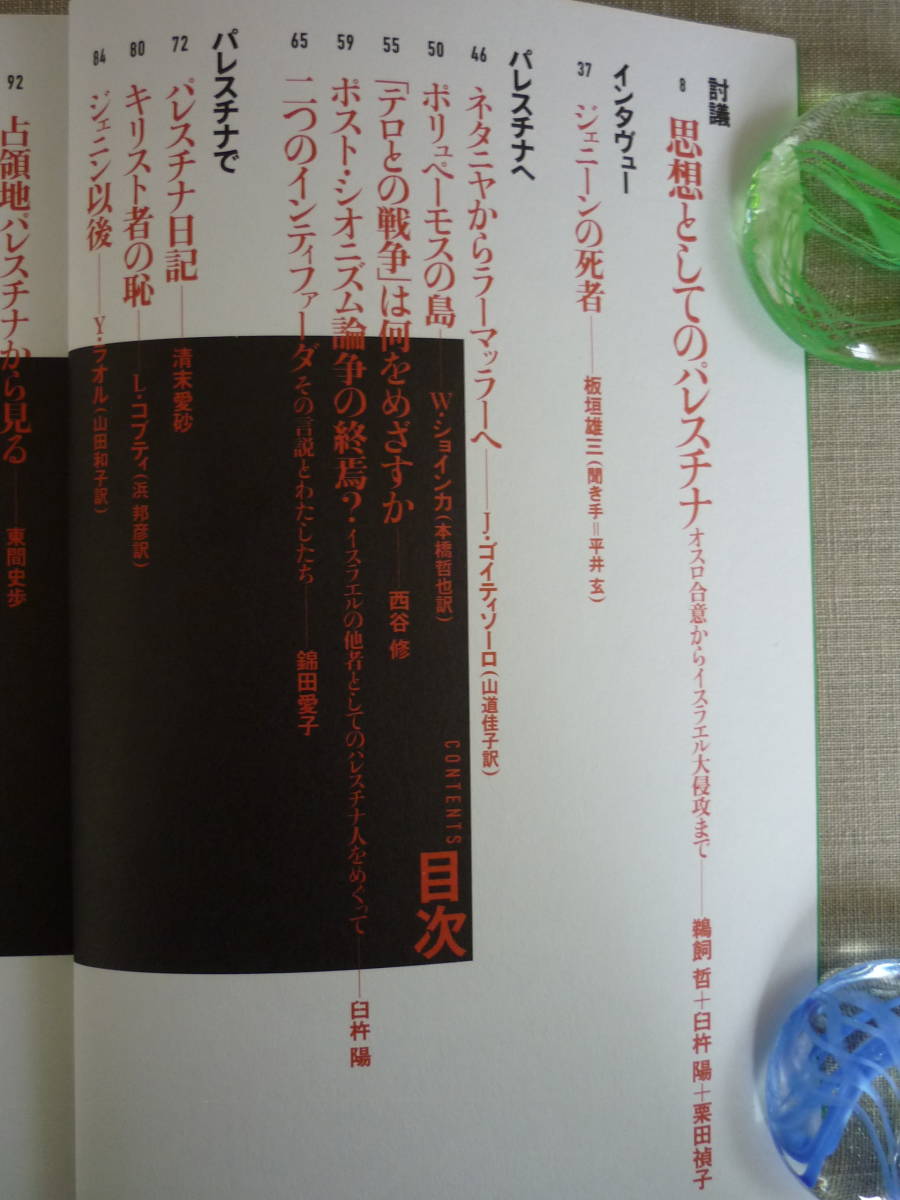 討議
8 思想としてのパレスチナ オスロ合意からイスラエル大侵攻まで――鵜飼 哲＋臼杵 陽＋栗田禎子
インタヴュー
37 ジェニーンの死者――板垣雄三(聞き手＝平井 玄)
パレスチナへ
46 ネタニヤからラーマッラーへ――J・ゴイティソーロ(山道佳子訳)
50 ポリュペーモスの島――W・ショインカ(本橋哲也訳)
55 「テロとの戦争」は何をめざすか――西谷 修
59 ポスト・シオニズム論争の終焉?・イスラエルの他者としてのパレスチナ人をめぐって――臼杵 陽
65 二つのインティファーダ その言説とわたしたち――錦田愛子
パレスチナで
72 パレスチナ日記――清末愛砂
80 キリスト者の恥――L・コプティ(浜 邦彦訳)
84 ジェニン以後――Y・ラオル(山田和子訳)
92 占領地パレスチナから見る――東間史歩
CONTENTS
目次